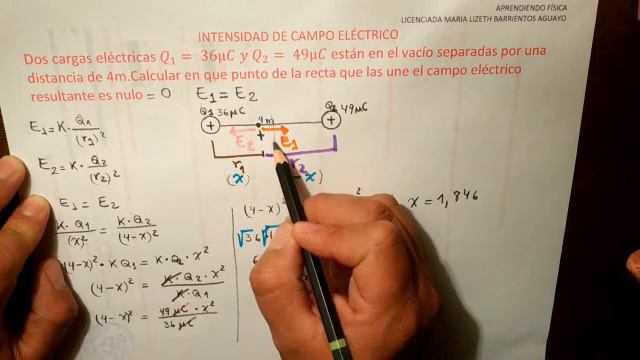 APRENDIENDO FÍSICA
LICENCIADA MARIA LIZETH BARRIENTOS AGUAYO
INTENSIDAD DE CAMPO ELÉCTRICO
Dos cargas eléctricas Q₁ = 36μC y Q₂ = 49μC están en el vacío separadas por una
distancia de 4m.Calcular en que punto de la recta que las une el campo eléctrico
resultante es nulo = 0
E₁ = E₂
Q₁ 36μC
4m
49μC
+
+
+
E₂
E₁
r₁
r₂
(x)
- x)
E₁ = K · Q₁/(r₁)²
E₂ = K · Q₂/(r₂)²
E₁ = E₂
K · Q₁/(x)² = K · Q₂/(4-x)²
(4-x)² · K Q₁ = K · Q₂ · x²
(4-x)² = K · Q₂ · x²/K · Q₁
(4-x)² = 49 μC · x²/36 μC
(4-x)²
√36
x = 1,846